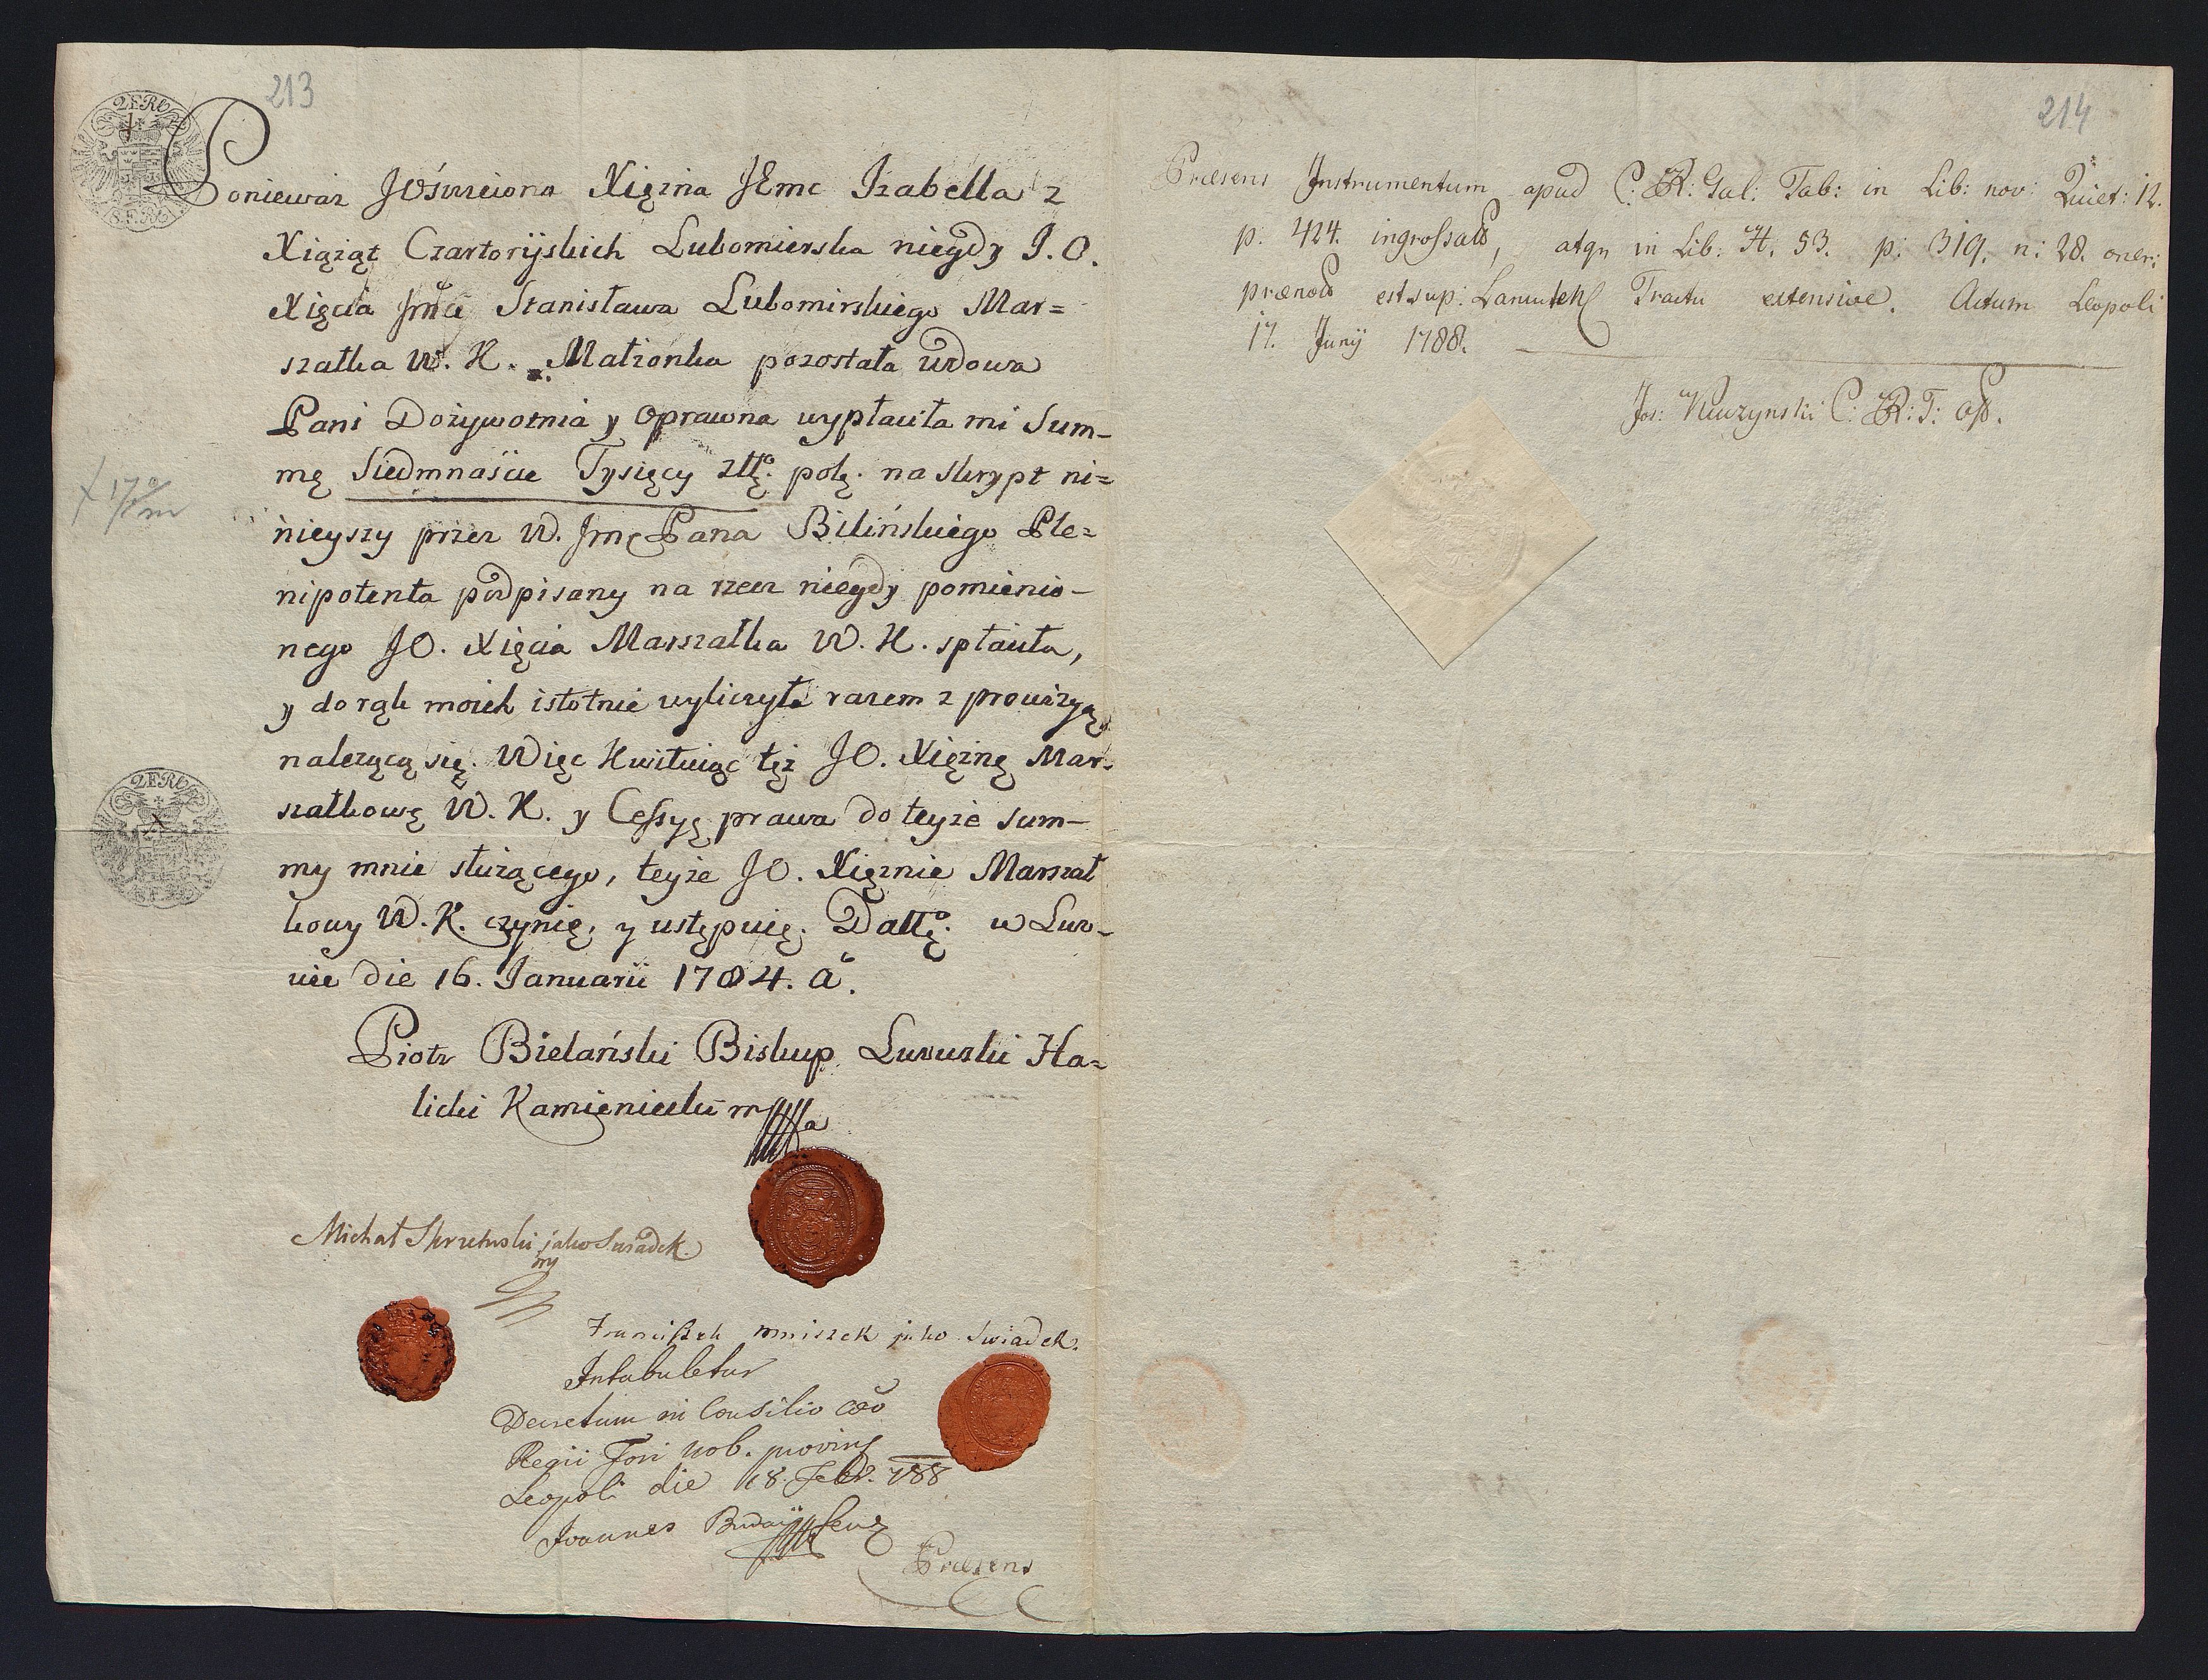 213
2 F. Rh.
Poniewaz JOświeciona Xięzna JEmc Izabella z
Xiąząt Czartoryskich Lubomierska niegdy J. O.
Xięcia Jmci Stanisława Lubomirskiego Mar=
szałka W. K. Małzonka pozostała wdowa
Pani Dożywotnia y Oprawna wypłaciła mi Sum-
mę Siedmnaście Tysięcy złł. pol. na skrypt ni=
nieyszy przez W. Jmc Pana Bilińskiego Ple=
nipotenta podpisany na rzecz niegdy pomienio-
nego JO. Xięcia Marszałka W. K. spłaciła,
y do rąk moich istotnie wyliczyła razem z prowizyą
nalezącą się. Więc Kwituiąc tęż JO. Xięznę Mar-
szałkowę W. K. y Cessyę prawa do teyże Sum-
my mnie służącego, teyże JO. Xięznie Marszał
kowy W. K. czynię, y ustępuię. Dattt. w Lwo-
wie die 16. Januarii 1784. a͂.
Piotr Bielański Biskup Lwowski Ha=
licki Kamieniecki mppa
Michał Skrzetuski jako Swiadek.
mp
Franciszek mniszek jako Swiadek.
Intabuletur
Decretum in Consilio Cæo
Regii Fori nob. provinc
Leopoli die 18. Febr. 788
Joannes
Præsens
214
Præsens Instrumentum apud C: R: Gal: Tab: in Lib: nov: Quiet: 12.
p. 424. ingrossatt, atq; in Lib: H. 53. p: 319. n: 28. oner:
prænott est sup: Lancuteń Tractu extensive. Actum Leopoli
17. Junij 1788.
Jos: C: R: T: